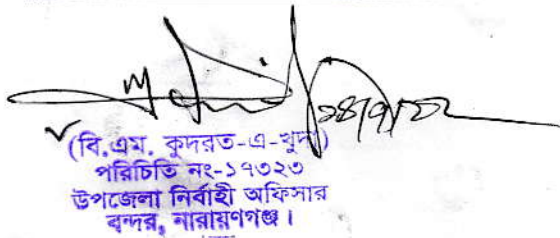 (বি.এম. কুদরত-এ-খুদা)
পরিচিতি নং-১৭৩২৩
উপজেলা নির্বাহী অফিসার
বন্দর, নারায়ণগঞ্জ।